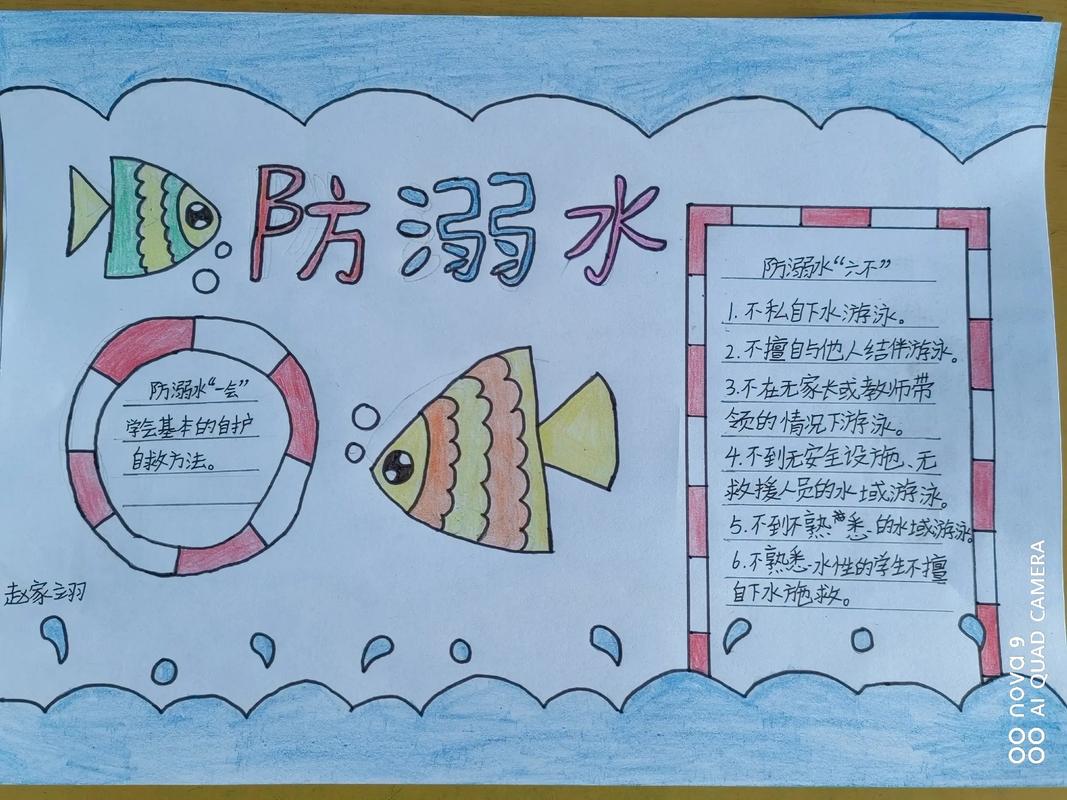 防溺水
防溺水“一会”
学会基本的自护
自救方法。
防溺水“六不”
1.不私自下水游泳。
2.不擅自与他人结伴游泳。
3.不在无家长或教师带
领的情况下游泳。
4.不到无安全设施、无
救援人员的水域游泳。
5.不到不熟悉的水域游泳。
6.不熟悉水性的学生不擅
自下水施救。
赵家翊
nova 9
AI QUAD CAMERA